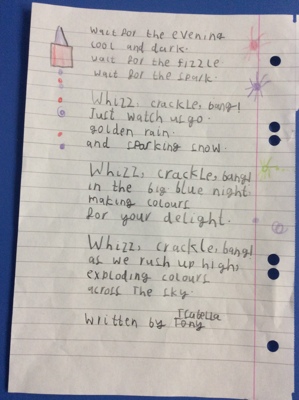 Wait for the evening
cool and dark.
wait for the fizzle
wait for the spark.
Whizz, crackle, bang!
Just watch us go.
golden rain.
and sparking snow.
Whizz, crackle, bang!
in the big blue night.
making colours
for your delight.
Whizz, crackle, bang!
as we rush up high,
exploding colours
across The sky.
Isabella
written by Tony